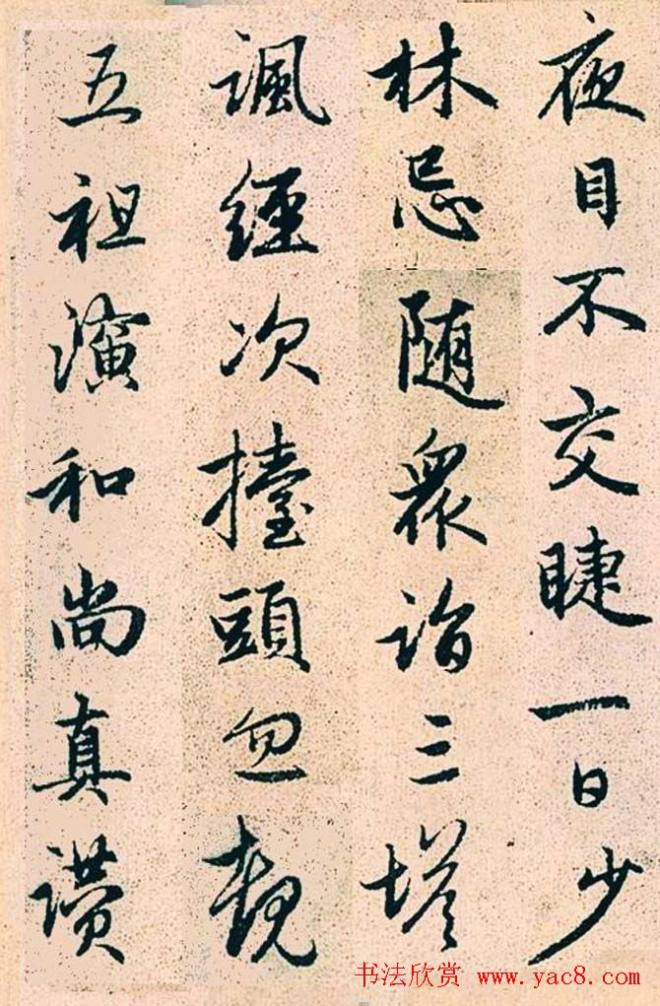 夜目不交睫一日少
林忌随衆詣三塔
諷經次擡頭忽覩
五祖演和尚真讃
书法欣赏 www.yac8.com